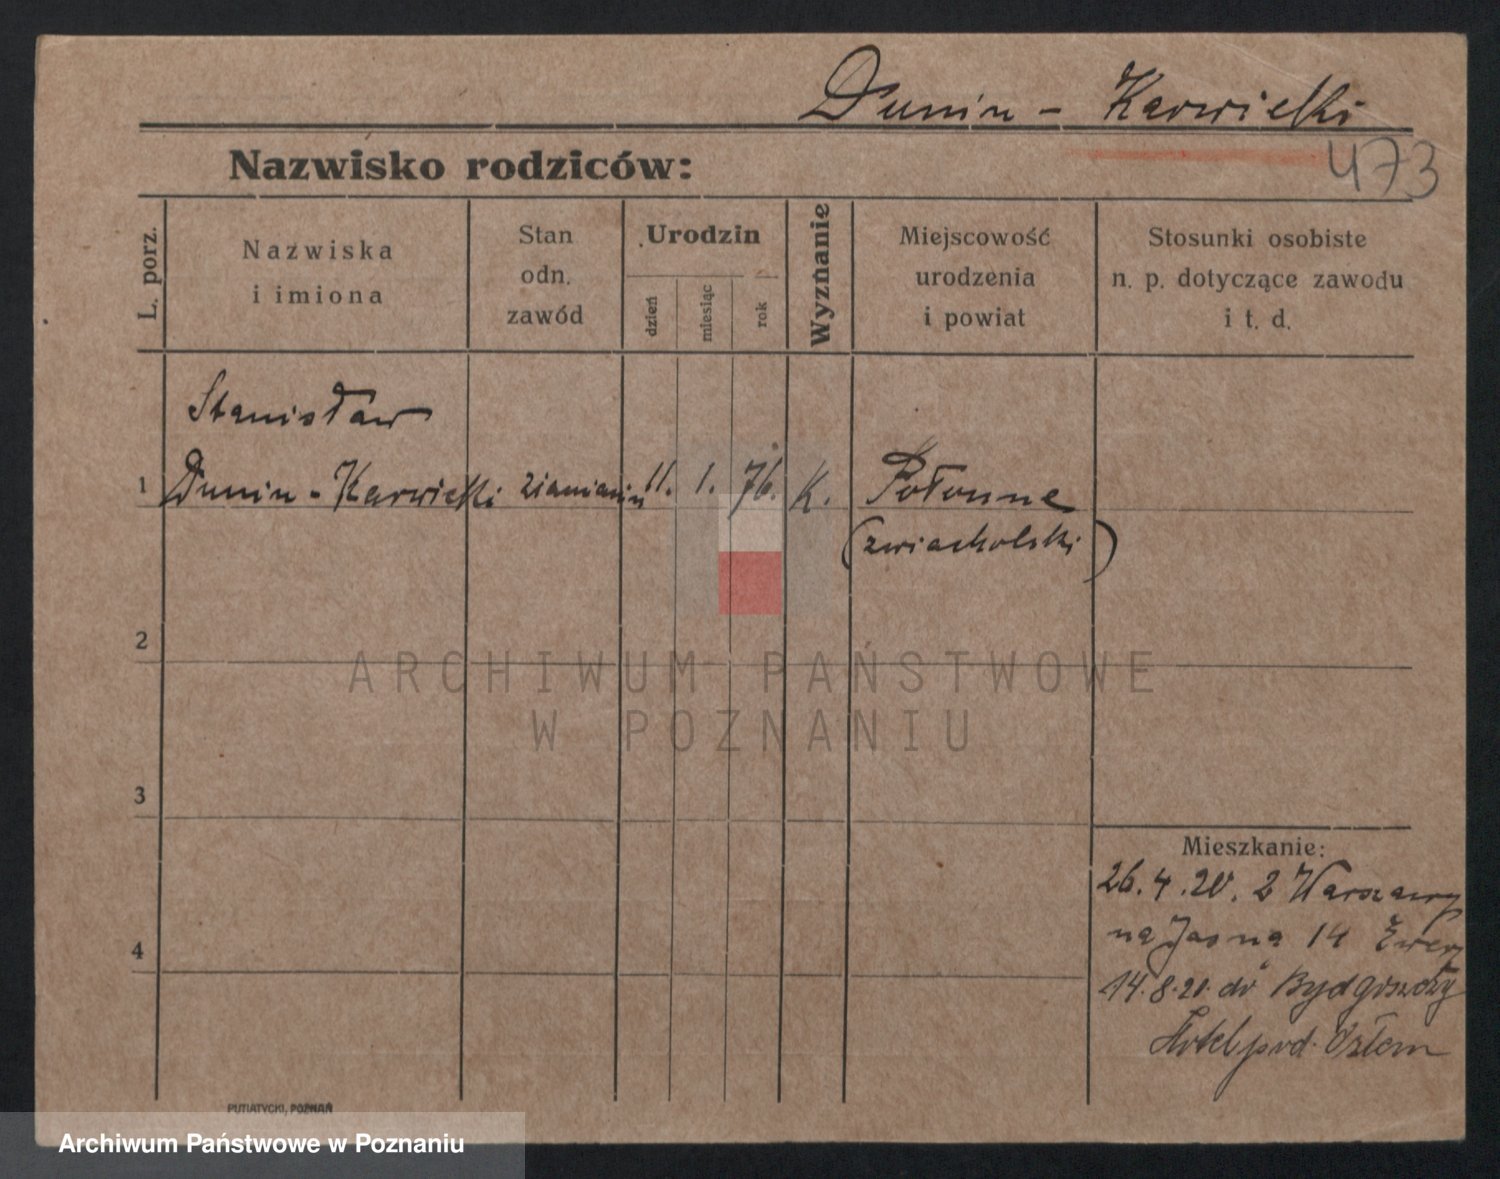 Dunin - Karwicki
473
Nazwisko rodziców:
L. porz.
Nazwiska
i imiona
Stan
odn.
zawód
Urodzin
dzień
miesiąc
rok
Wyznanie
Miejscowość
urodzenia
i powiat
Stosunki osobiste
n. p. dotyczące zawodu
i t. d.
Stanisław
1 Dunin - Karwicki ziemianin 11. 1. 76. K. Połonne
(zwiacholski)
2
3
4
Mieszkanie:
26.4.20. z Warszawy
na Jasna 14
14.8.20. do Bydgoszczy
Hotel pod Orłem
PUTIATYCKI, POZNAŃ
ARCHIWUM PAŃSTWOWE
W POZNANIU
Archiwum Państwowe w Poznaniu